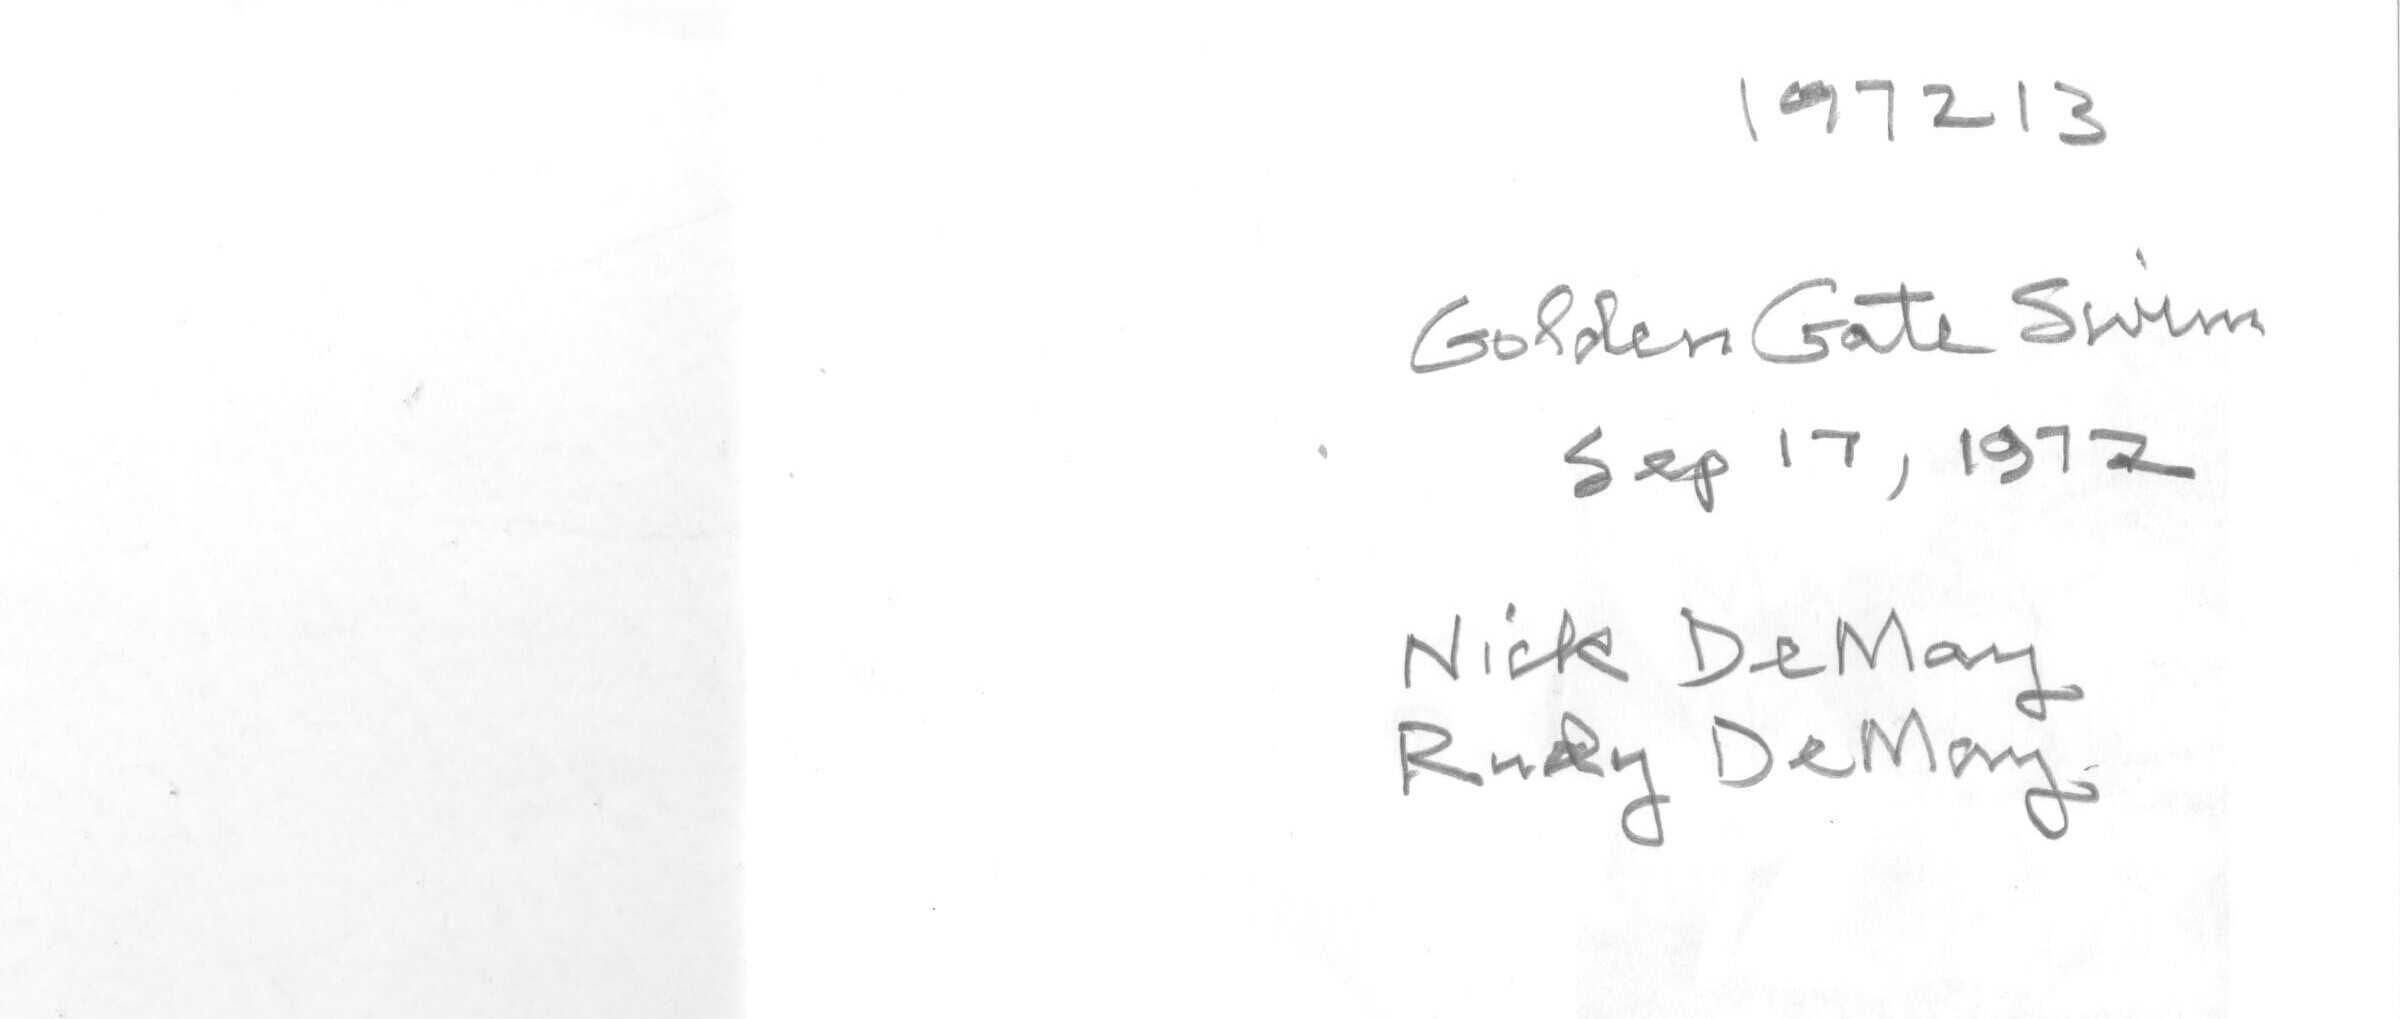 197213
Golden Gate Swim
Sep 17, 1972
Nick DeMay
Rudy DeMay